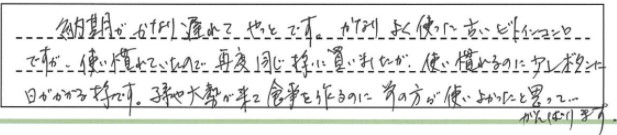 納期がかなり遅れて やっと です。かなり よく使った 古い ビルトインコンロ
ですが、使い慣れていたので 再度 同じ様に 買いましたが、使い慣れるのに
日がかかる様です。 大勢が来て 食事を作るのに 前の方が 使いよかったと思って…
がんばります。